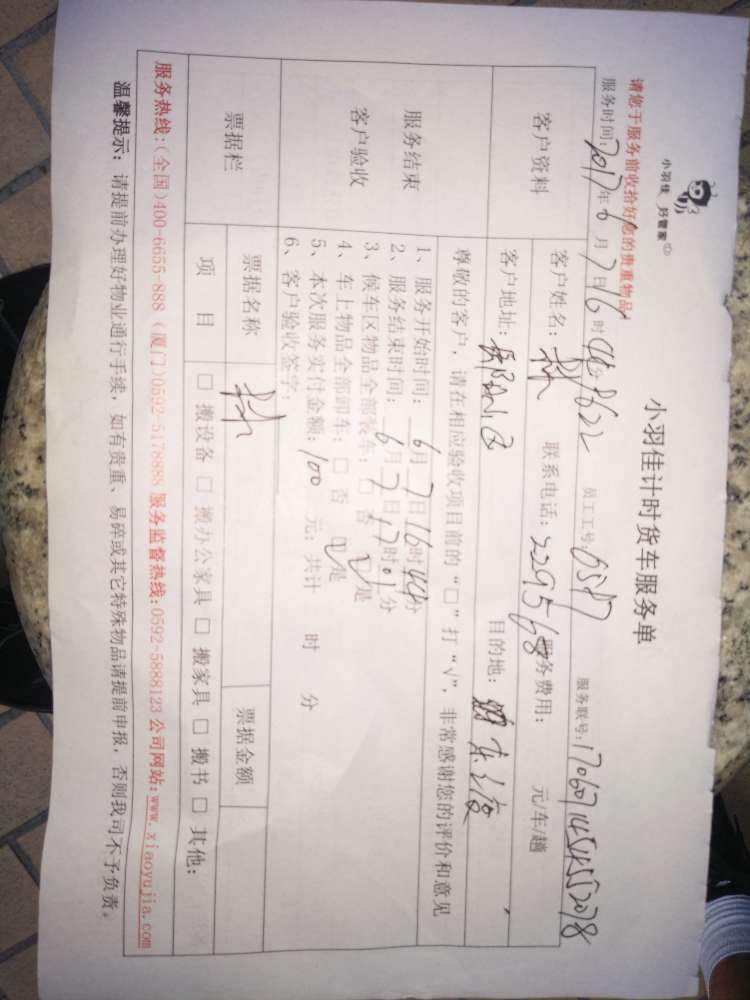 小羽佳 好管家
小羽佳计时货车服务单
请您于服务前收拾好您的贵重物品!
服务时间: 2017年6月7日16时 员工工号: 服务联号:
客户资料
客户姓名: 联系电话: 服务费用: 元/车/趟
客户地址: 目的地:
服务结束
客户验收
尊敬的客户，请在相应验收项目前的“□”打“√”，非常感谢您的评价和意见
1、服务开始时间: 6月7日16时44分
2、服务结束时间: 6月7日17时01分
3、候车区物品全部装车: □否 ☑是
4、车上物品全部卸车: □否 ☑是
5、本次服务实付金额: 100 元; 共计 时 分
6、客户验收签字:
票据栏
票据名称 票据金额
项 目 □搬设备 □搬办公家具 □搬家具 □搬书 □其他:
服务热线:(全国)400-6655-888 (厦门)0592-5178888 服务监督热线:0592-5888123 公司网站:www.xiaoyujia.com
温馨提示: 请提前办理好物业通行手续，如有贵重、易碎或其它特殊物品请提前申报，否则我司不予负责。